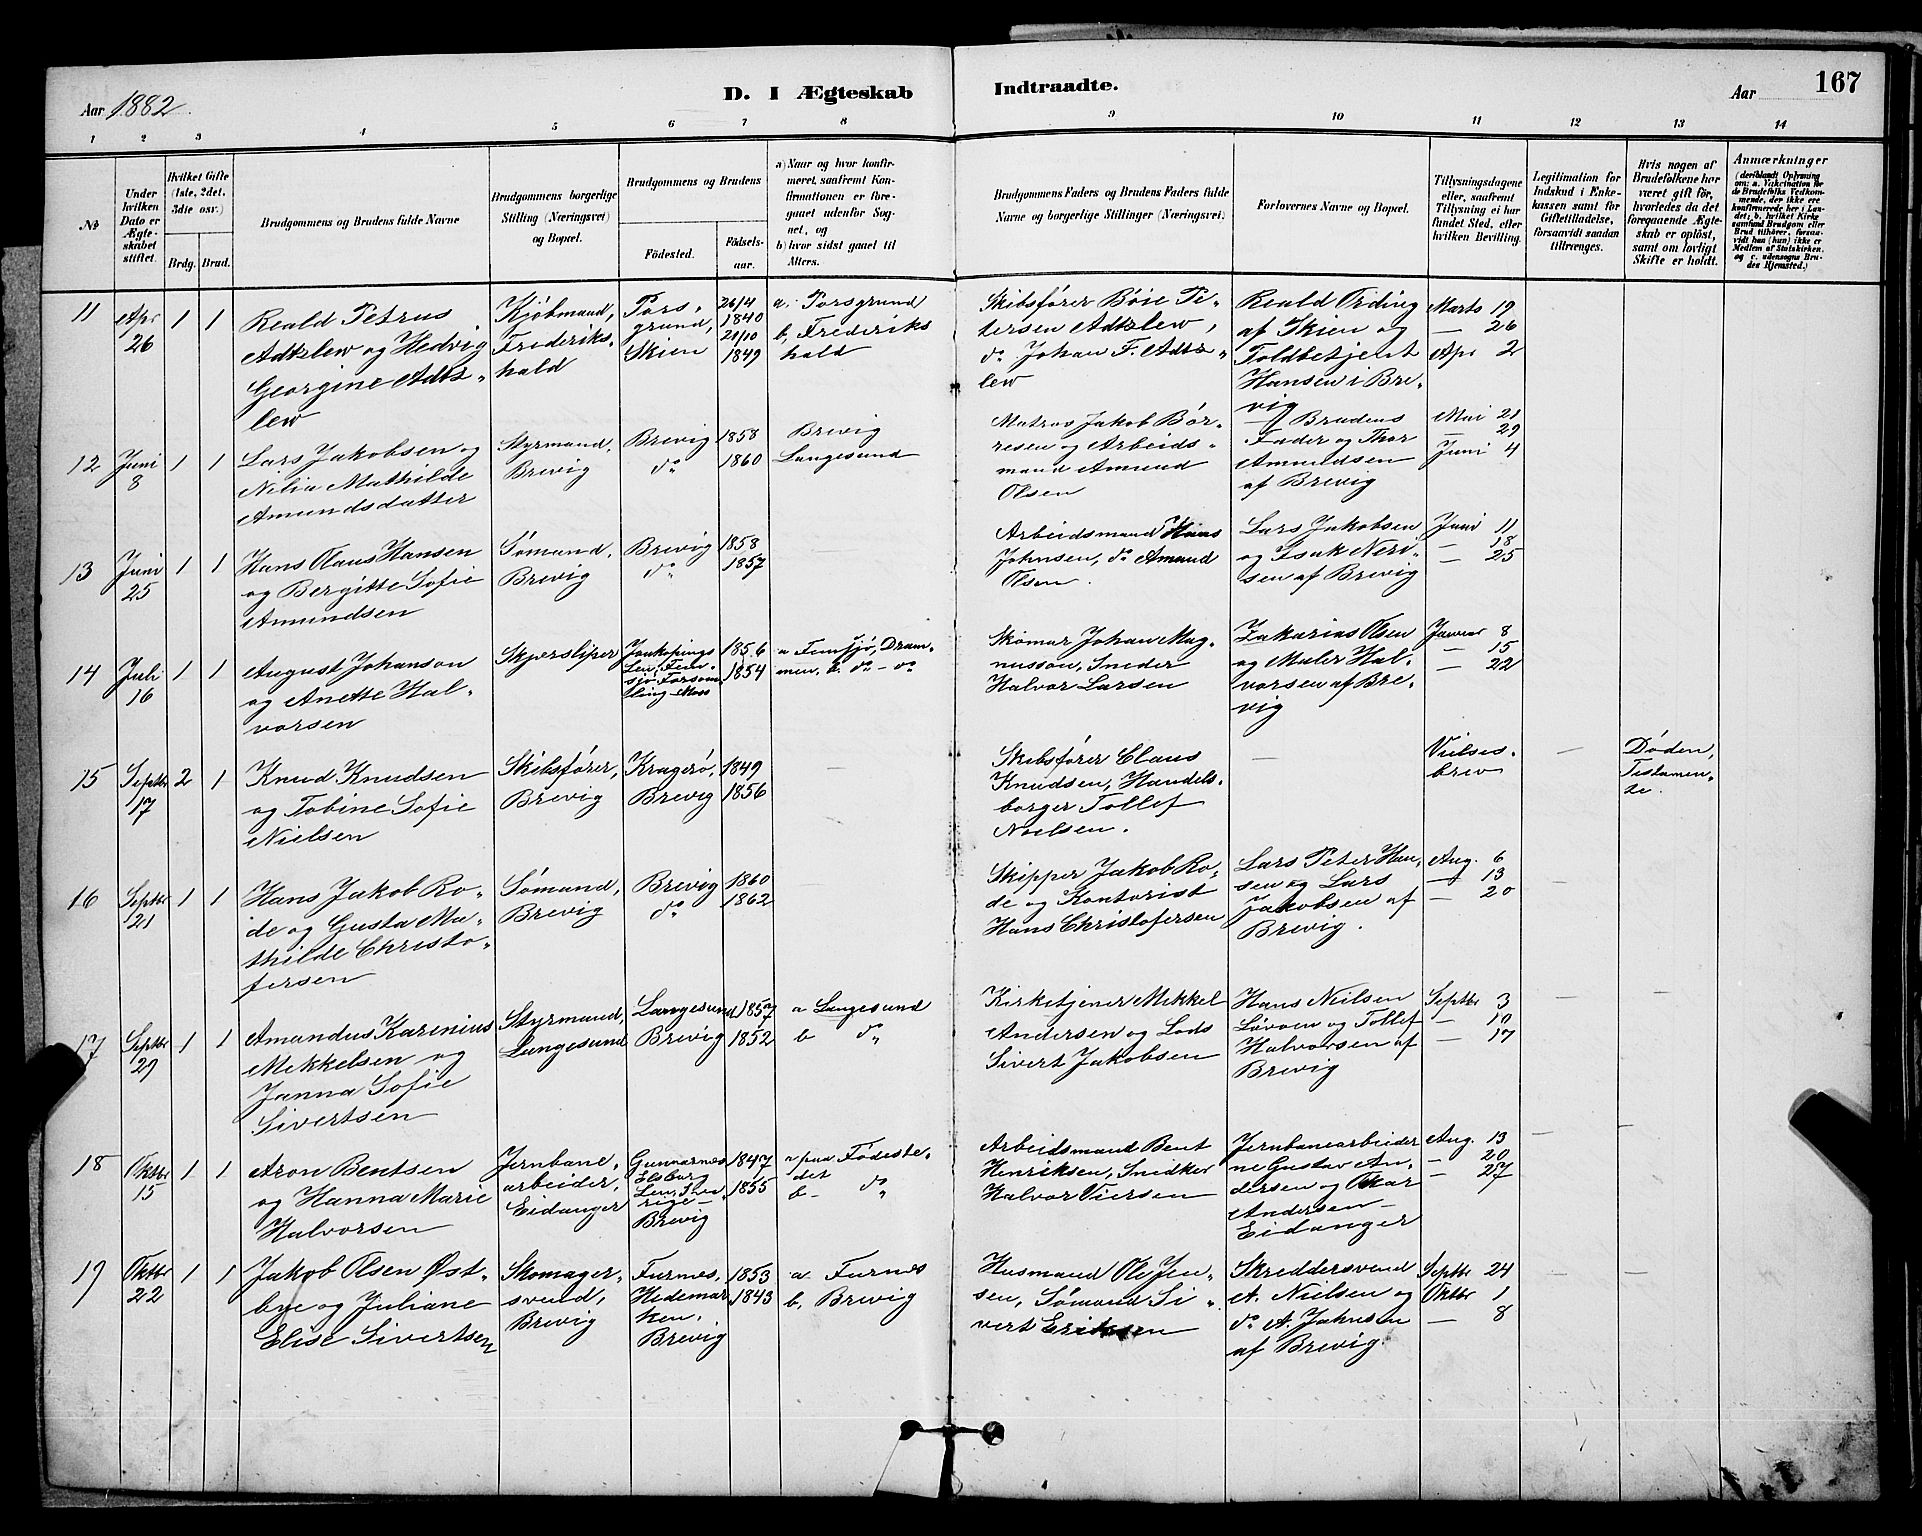 Aar 1882
D. I Ægteskab
Indtraadte.
Aar
167
1 2 3 4 5 6 7 8 9 10 11 12 13 14
№
Under hvilken Dato er Ægteskabet stiftet.
Hvilket Gifte (1ste, 2det, 3die osv.)
Brdg. Brud.
Brudgommens og Brudens fulde Navne
Brudgommens borgerlige Stilling (Næringsvei) og Bopæl.
Brudgommens og Brudens
Fødested.
Fødsels-aar.
a) Naar og hvor konfirmeret, saafremt Konfirmationen er foregaaet udenfor Sognet, og
b) hvor sidst gaaet til Alters.
Brudgommens Faders og Brudens Faders fulde Navne og borgerlige Stillinger (Næringsvei).
Forlovernes Navne og Bopæl.
Tillysningsdagene eller, saafremt Tillysning ei har fundet Sted, efter hvilken Bevilling.
Legitimation for Indskud i Enkekassen samt for Giftetilladelse, forsaavidt saadan tiltrænges.
Hvis nogen af Brudefolkene har været gift før, hvorledes da det foregaaende Ægteskab er opløst, samt om lovligt Skifte er holdt.
Anmærkninger
(deriblandt Oplysning om: a. Vakcination for de Brudefolks Vedkommende, der ikke ere konfirmerede her i Landet; b. hvilket Kirkesamfund Brudgom eller Brud tilhører, forsaavidt han (hun) ikke er Medlem af Statskirken, og c. udensogns Brudes Hjemsted.)
11
Apr
26
1 1
Reald Petrus
Adtzlew og Hedvig
Georgine Adtz„
lew
Kjøbmand,
Frederiks„
hald
Pors„
grund,
Skien
26/4
1840
21/10
1849
a. Porsgrund
b, Frederiks
hald
Skibsfører Bøie Pe„
tersen Adtzlew,
do Johan F. Adtz„
lew
Reald Ording
af Skien og
Toldbetjent
Hansen i Bre„
vig
Marts 19
— 26
Apr 2
12
Juni
8
1 1
Lars Jakobsen og
Nilia Mathilde
Amundsdatter
Styrmand,
Brevig
Brevig
do
1858
1860
Brevig
Langesund
Matros Jakob Bør„
resen og Arbeids„
mand Amund
Olsen
Brudens
Fader og Thor
Amundsen
af Brevig
Mai 21
— 29
Juni 4
13
Juni
25
1 1
Hans Claus Hansen
og Bergitte Sofie
Amundsen
Sømand,
Brevig
Brevig
do
1858
1857
Arbeidsmand Hans
Johnsen, do Amund
Olsen.
Lars Jakobsen
og Isak Neri„
sen af Brevig
Juni 11
— 18
— 25
14
Juli
16
1 1
August Johanson
og Anette Hal„
vorsen
Skjærsliper
Jønkøpings
Len,
Moss
1856
1854
a Femsjø, Dram„
men, b. do — do
Skomar Johan Mag„
nusson, Smeder
Halvor Larsen
Zakarias Olsen
og Maler Hal„
vorsen af Bre„
vig
Januar 8
— 15
— 22
15
Septbr
17
2 1
Knud Knudsen
og Tobine Sofie
Nielsen
Skibsfører,
Brevig
Kragerø,
Brevig
1849
1856
—
Skibsfører Claus
Knudsen, Handels„
borger Tollef
Nielsen.
—
Vielses„
brev
—
Døden,
Testamen„
te.
16
Septbr
21
1 1
Hans Jakob Ro„
de og Gusta Ma„
thilde Christo„
fersen
Sømand,
Brevig
Brevig
do
1860
1862
—
Skipper Jakob Ro„
de og Kontorist
Hans Christofersen
Lars Peter Han„
sen og Lars
Jakobsen af
Brevig.
Aug. 6
— 13
— 20
— —
17
Septbr
29
1 1
Amandus Karinius
Mekkelsen og
Janna Sofie
Sivertsen
Styrmand,
Langesund
Langesund,
Brevig
1857
1852
a Langesund
b do
Kirketjener Mekkel
Andersen og Lods
Sivert Jakobsen
Hans Nielsen
Løvoen og Tollef
Halvorsen af
Brevig
Septbr 3
— 10
— 17
— —
18
Oktbr
15
1 1
Aron Bentsen
og Hanna Marie
Halvorsen
Jernbane„
arbeider,
Eidanger
Gunnarnes
Elsborg
Len, Sve„
rige —
Brevig
1847
1855
a paa Fødeste„
det
b — do
Arbeidsmand Bent
Henriksen, Snidker
Halvor Viersen
Jernbanearbeider
ne Gustav An„
dersen og Oskar
Andersen —
Eidanger
Aug. 13
— 20
— 27
— —
19
Oktbr
22
1 1
Jakob Olsen Øst„
bye og Juliane
Elise Sivertsen
Skomager„
svend,
Brevig
Furnes,
Hedemar
ken.
Brevig
1853
1843
a. Furnes
b, Brevig
Husmand Ole Jen„
sen, Sømand Si„
vert Eriksen
Skreddersvend
A. Nielsen og
do A. Jahnsen
af Brevig.
Septbr 24
Oktbr 1
— 8
— —